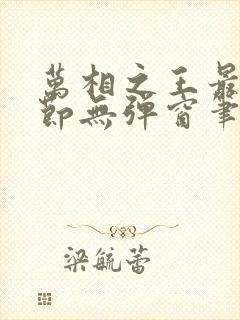 萬相之王最
節無彈窗筆
梁毓蕾